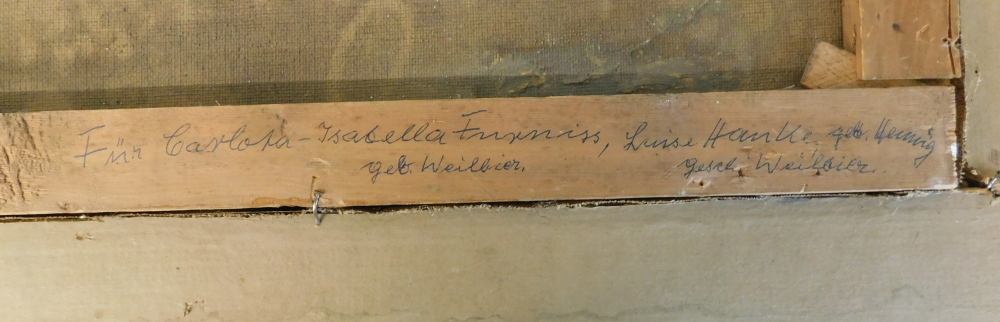 Für Carlota-Isabella Furniss, Luise Hanke geb. Hennig
geb. Weilbier. gesch. Weilbier.